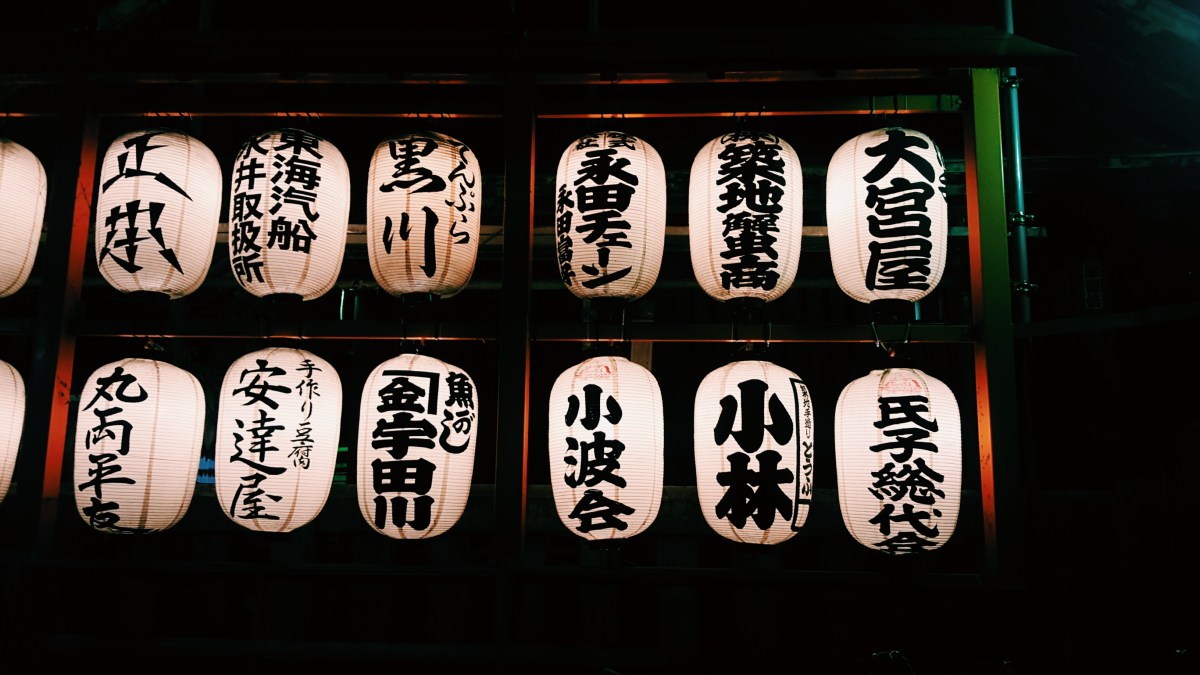 正
東海汽船
井取扱所
てんぷら
黒川
永田チェーン
永田
築地蟹商
大宮屋
丸両平友
手作り豆腐
安達屋
魚がし
金宇田川
小波会
築地手造り とうふ
小林
氏子総代会